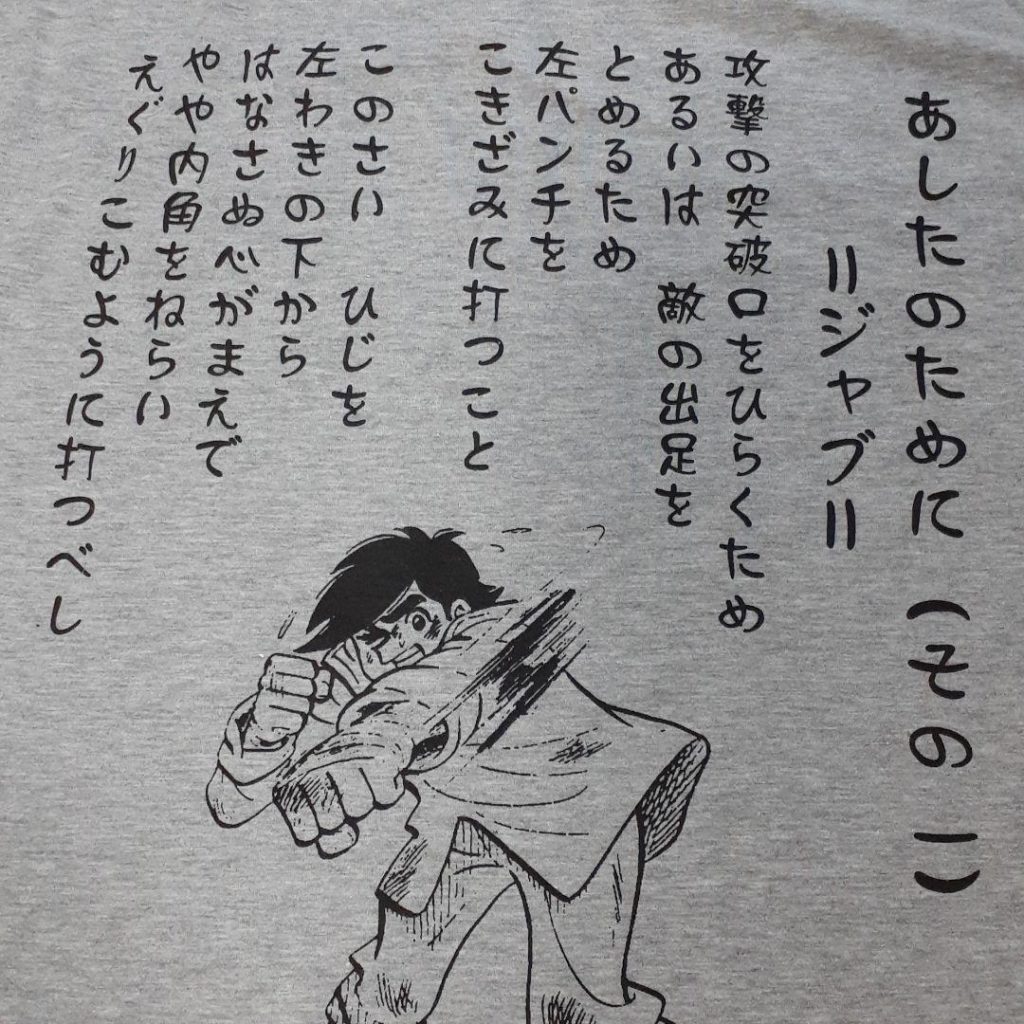 あしたのために（その一）
＝ジャブ＝
攻撃の突破口をひらくため
あるいは　敵の出足を
とめるため
左パンチを
こきざみに打つこと
このさい　ひじを
左わきの下から
はなさぬ心がまえで
やや内角をねらい
えぐりこむように打つべし